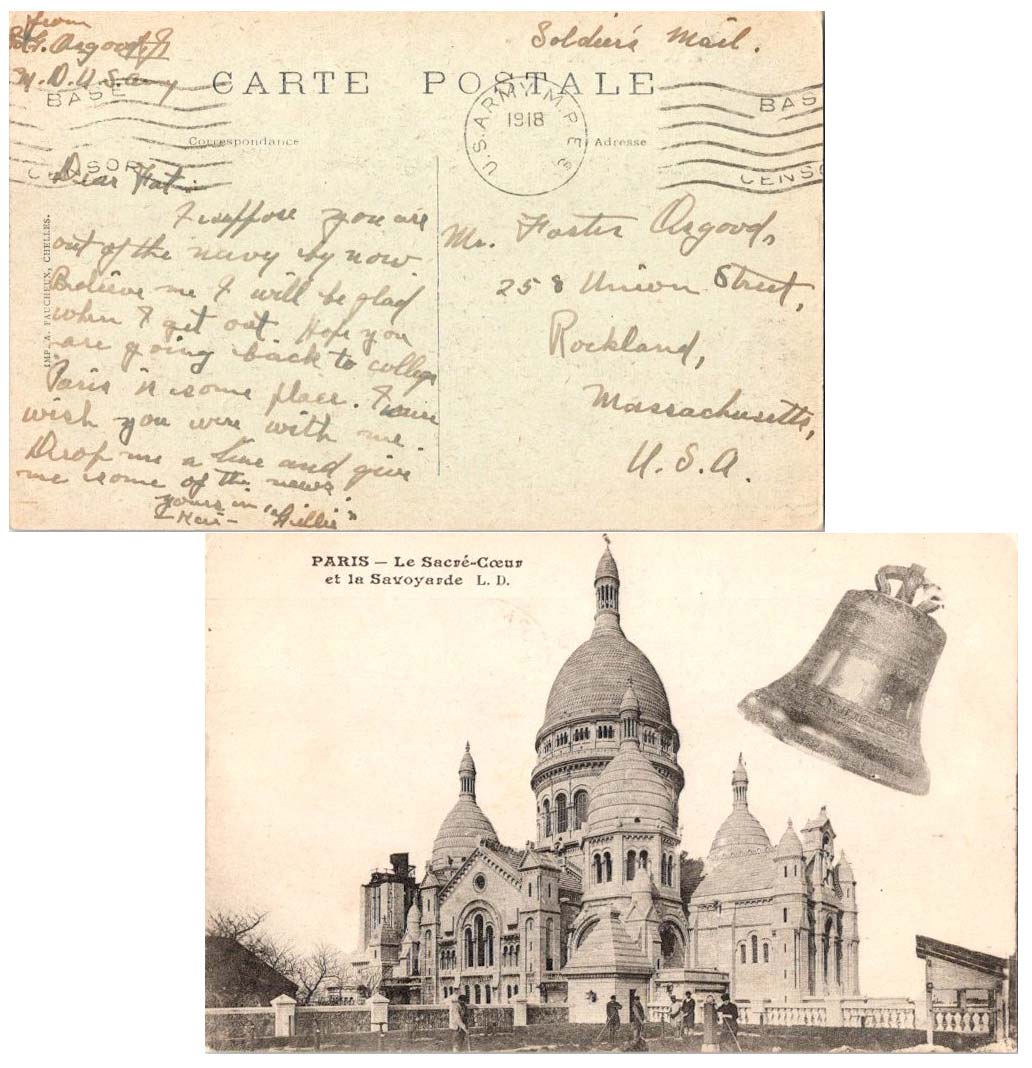 from
Osgood Jr
M.D. U.S. Army
Soldier's Mail.
CARTE POSTALE
BASE
CENSOR
U.S. ARMY M.P.E.
1918
BAS
CENSO
Correspondance
Adresse
Dear Fat:
I suppose you are
out of the navy by now.
Believe me I will be glad
when I get out. Hope you
are going back to college
Paris is some place. I sure
wish you were with me.
Drop me a line and give
me some of the news
yours in
"Gillie"
Mr. Foster Osgood,
258 Union Street,
Rockland,
Massachusetts,
U.S.A.
IMP. A. FAUCHEUX, CHELLES.
PARIS — Le Sacré-Cœur
et la Savoyarde L. D.